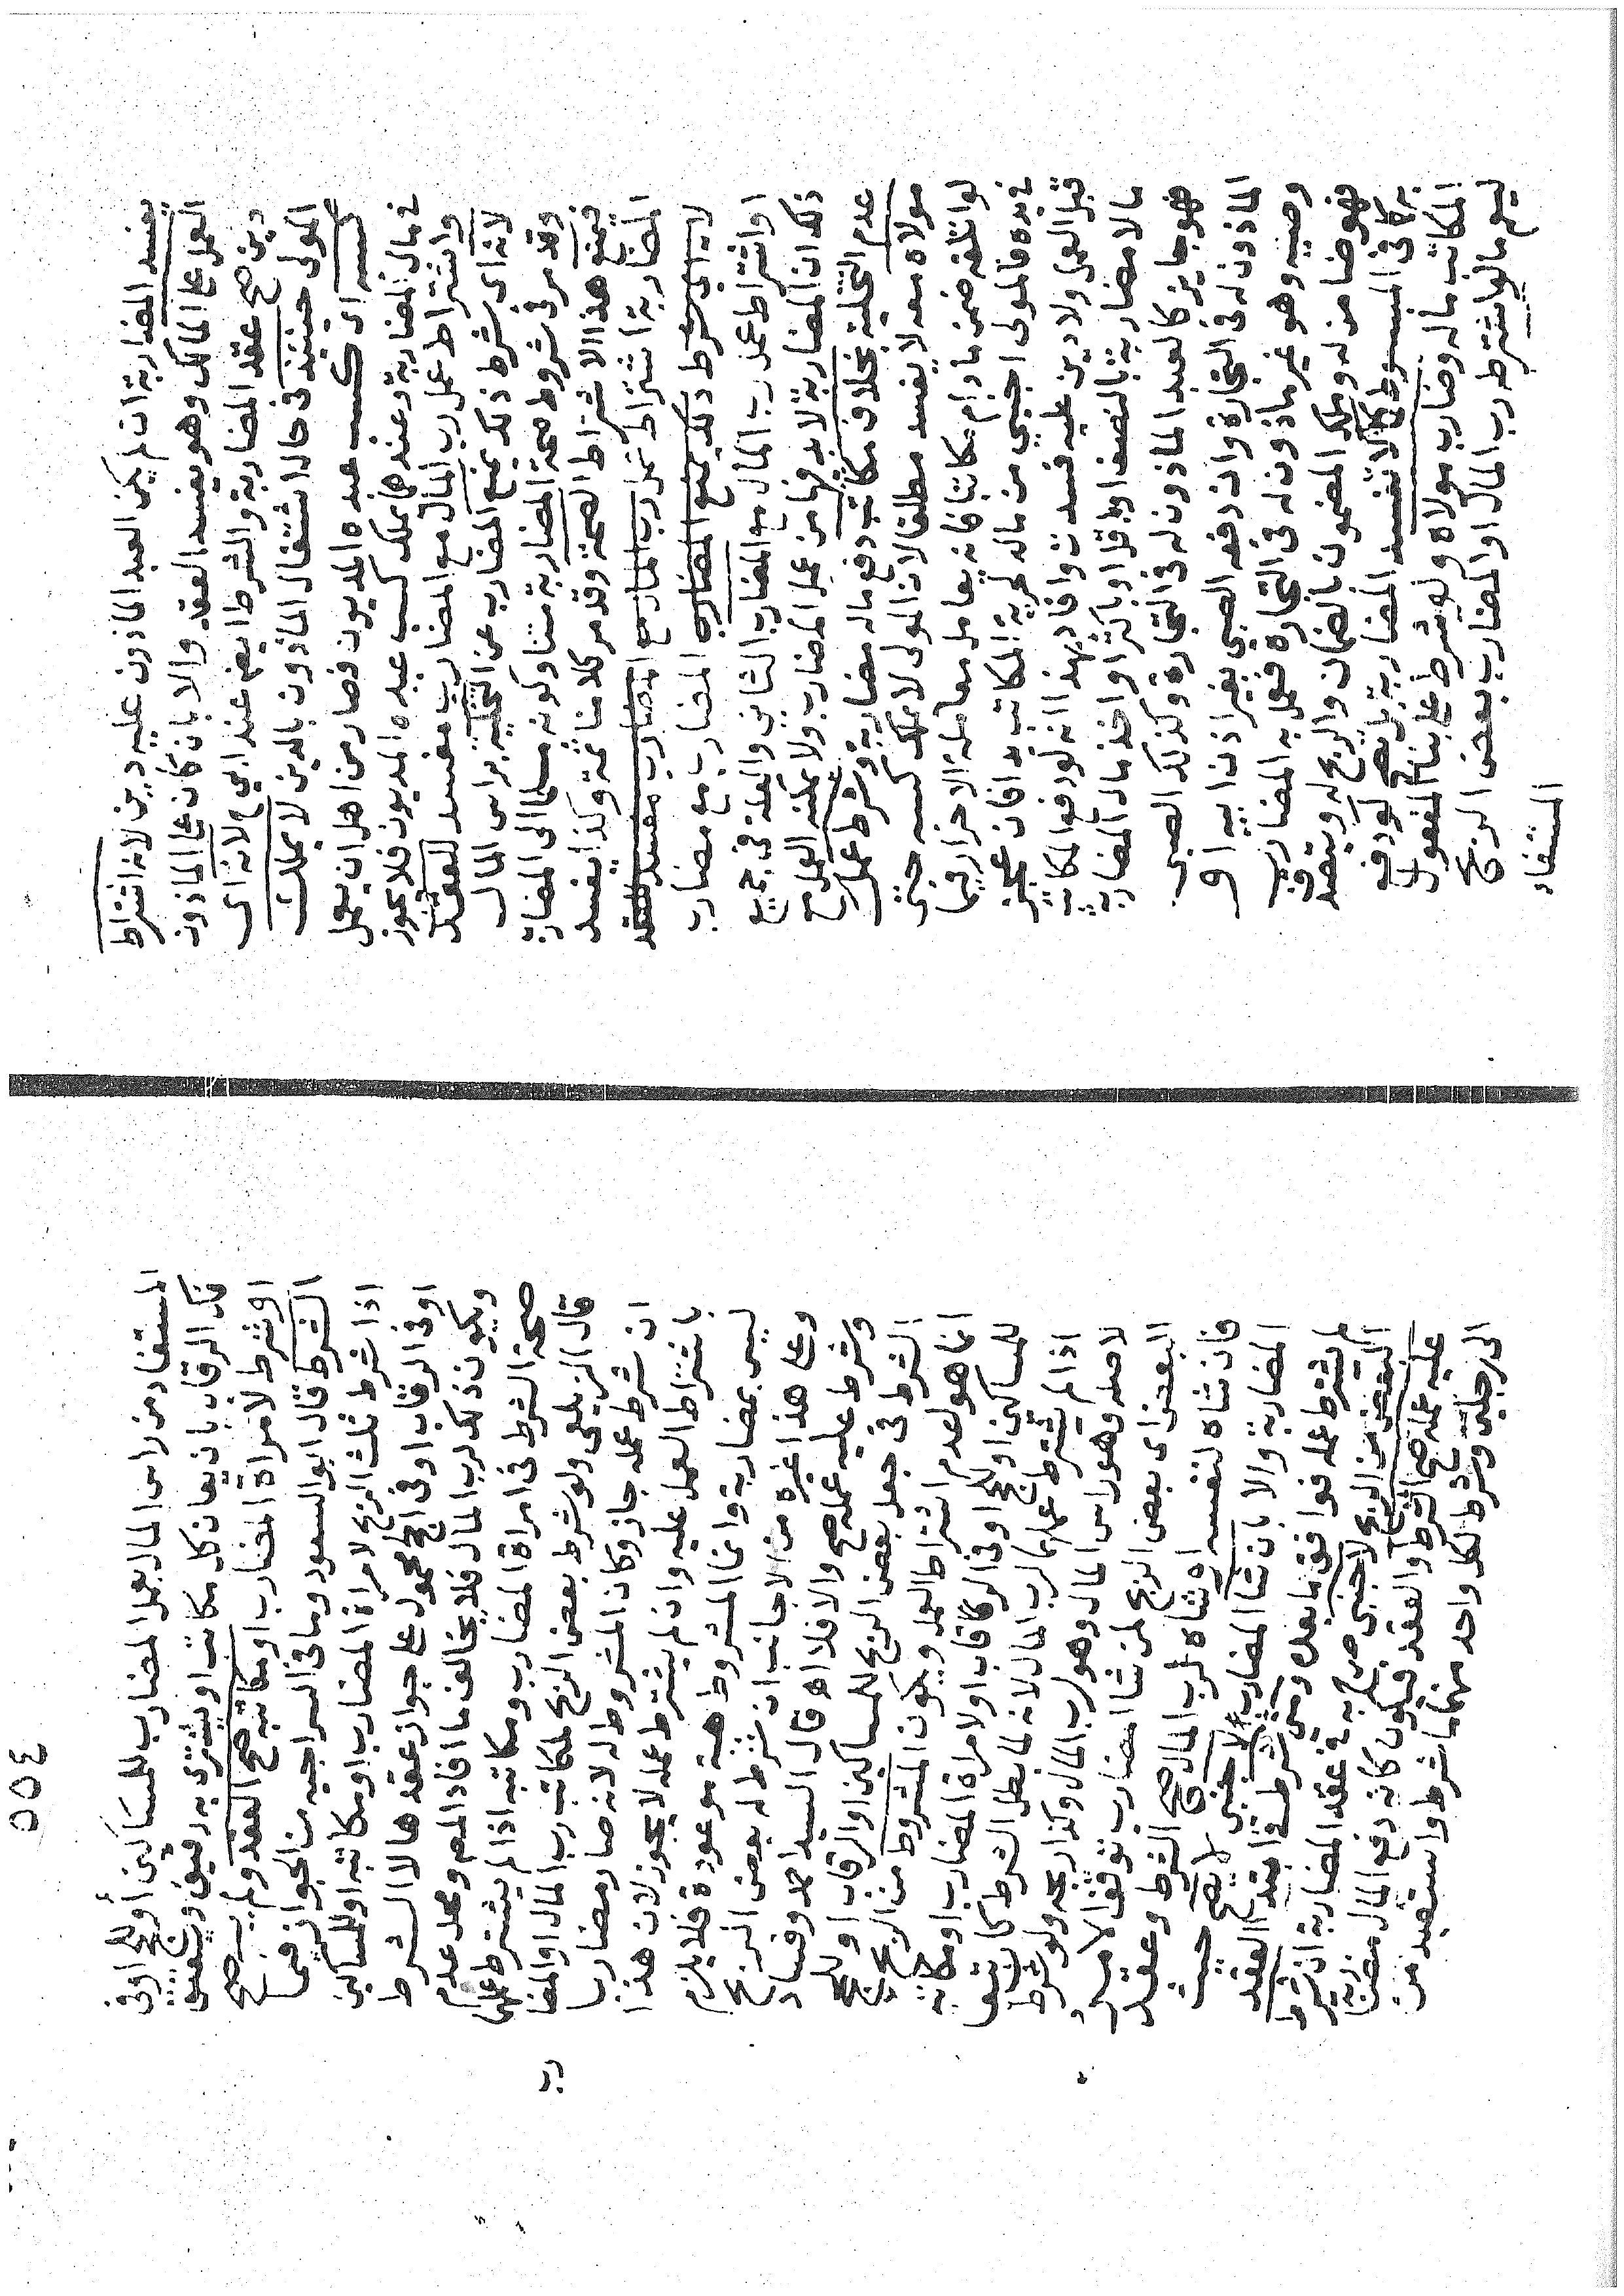 يفسد المضاربة ان لم يكن العبد الماذون عليه دين لانه اشتراط
العمل على المالك وهو يفسد العقد والا بان كان على الماذون
دين صح عقد المضاربة والشرط ايضا عند ابي ح لانه اى
المولى حينئذ فى حال اشتغال الماذون بالدين لا يملك
كسبه اى كسب عبده المديون فصار من اهل ان يعمل
فى مال المضاربة وعندهما يملك كسب عبده المديون فلا يجوز
واشتراط عمل رب المال مع المضارب مفسد للعقد
لانه اى شرط ذلك يمنع المضارب عن التخلية براس المال
وقد مر فى شروط صحة المضاربة متنا وكونه مسلما الى المضارب
فيمنع هذا الاشتراط الصحة وقد مر كلامنا ثمة وكذا يفسد
المضاربة اشتراط عمل رب المال مع المضارب مفسد للعقد
لانه اى شرط ذلك يمنع المضارب المضارب مع مضارب
او اشتراط عمل رب المال مع المضارب الثاني والعلة فى جميع
ذلك ان المضاربة لا بد فيها من عمل المضارب ولا يمكنه العمل مع
عدم التخلية بخلاف مكاتب دفع ماله مضاربة وشرط عمل
مولاه معه لا يفسد مطلقا لان المولى لا يملك كسبه حتى
لو اتلفه ضمن ما دام مكاتبا فانه يعامل معاملة الاحرار فيما
فى يده فالمولى اجنبي من ماله لحرية المكاتب يدا فان عجز
قبل العمل ولا دين عليه فسدت وافاد بهذا انه لو دفع المكاتب
مالا مضاربة بالنصف او باقل او باكثر او اخذ مال المضاربة
فهو جايز كالعبد الماذون له فى التجارة وكذلك الصبي
الماذون له فى التجارة وان دفعه الصبي بغير اذن ابيه او
وصيه وهو غير ماذون له فى التجارة فعمل به المضارب
فهو ضامن له وملك المضمون بالضمان والربح له ويتصدق
به كما فى المبسوط كما لا تفسد المضاربة بل يصح لو دفع
المكاتب ماله وضارب مولاه ولو شرط على بناء المفعول
ليعم ما لو اشترط رب المال او المضارب بعض الربح
المستفاد
٥٥٤
المستفاد من راس المال بعمل المضارب للمساكين أو للحج او فى
فك الرقاب بان يعان كل مكاتب او يشترى به رقيق ويعتق
او شرط لامراة المضارب او مكاتبه صح العقد ولم يصح
الشرط قال ابو السعود وما فى السراجيه من الجواز فيما
اذا شرط ثلث الربح لامراة المضارب او مكاتبه او للمساكين
او فى الرقاب او فى الحج محمول على جواز عقدها لا الشرط
ويكون ذلك لرب المال فلا يخالف ما افاد المص ومحمل عدم
صحة الشرط فى امراة المضارب ومكاتبه اذا لم يشترط عملها
قال الزيلعى ولو شرط بعض الربح لمكاتب رب المال او المضا
رب
ان شرط عمله جاز وكان المشروط له لانه صار مضاربا
باشتراط العمل عليه وان لم يشترط عمله لا يجوز لان هذا
ليس بمضاربة وانما المشروط هبة موعودة فلا يلزم
وعلى هذا غيره من الاجانب ان شرط له بعض الربح
وشرط عليه عمله صح والا فلا اه قال السيد احمد وفساد
الشرط فى جعل بعض الربح للمساكين او الرقاب او للحج
انما هو لعدم اشتراط العمل ويكون المشروط من الربح
للمساكين او للحج او فى الرقاب او لامراة المضارب او مكاتبه
اذا لم يشترط عملهم لرب المال لانه لما بطل الشرط كان تبعا
لاصله وهو راس المال وهو لرب المال وكذا ربحه ولو شرط
البعض اى بعض الربح لمن شاء المضارب توقف الامر
فان شاه لنفسه او شاه لرب المال صح الشرط وعقد
المضاربة والا بان شاء المضارب لاجنبى لا يصح حيث
لم يشترط عمله فوافق ما بعده ومتى شرط فى ابتداء العقد
البعض من الربح لاجنبى صح به فى عقد المضاربة ان شرط
عليه عمله صح الشرط والعقد فيكون كانه دفع المال مضاربة
الى رجلين وشرط لكل واحد منهما ما شرط واستفيد من